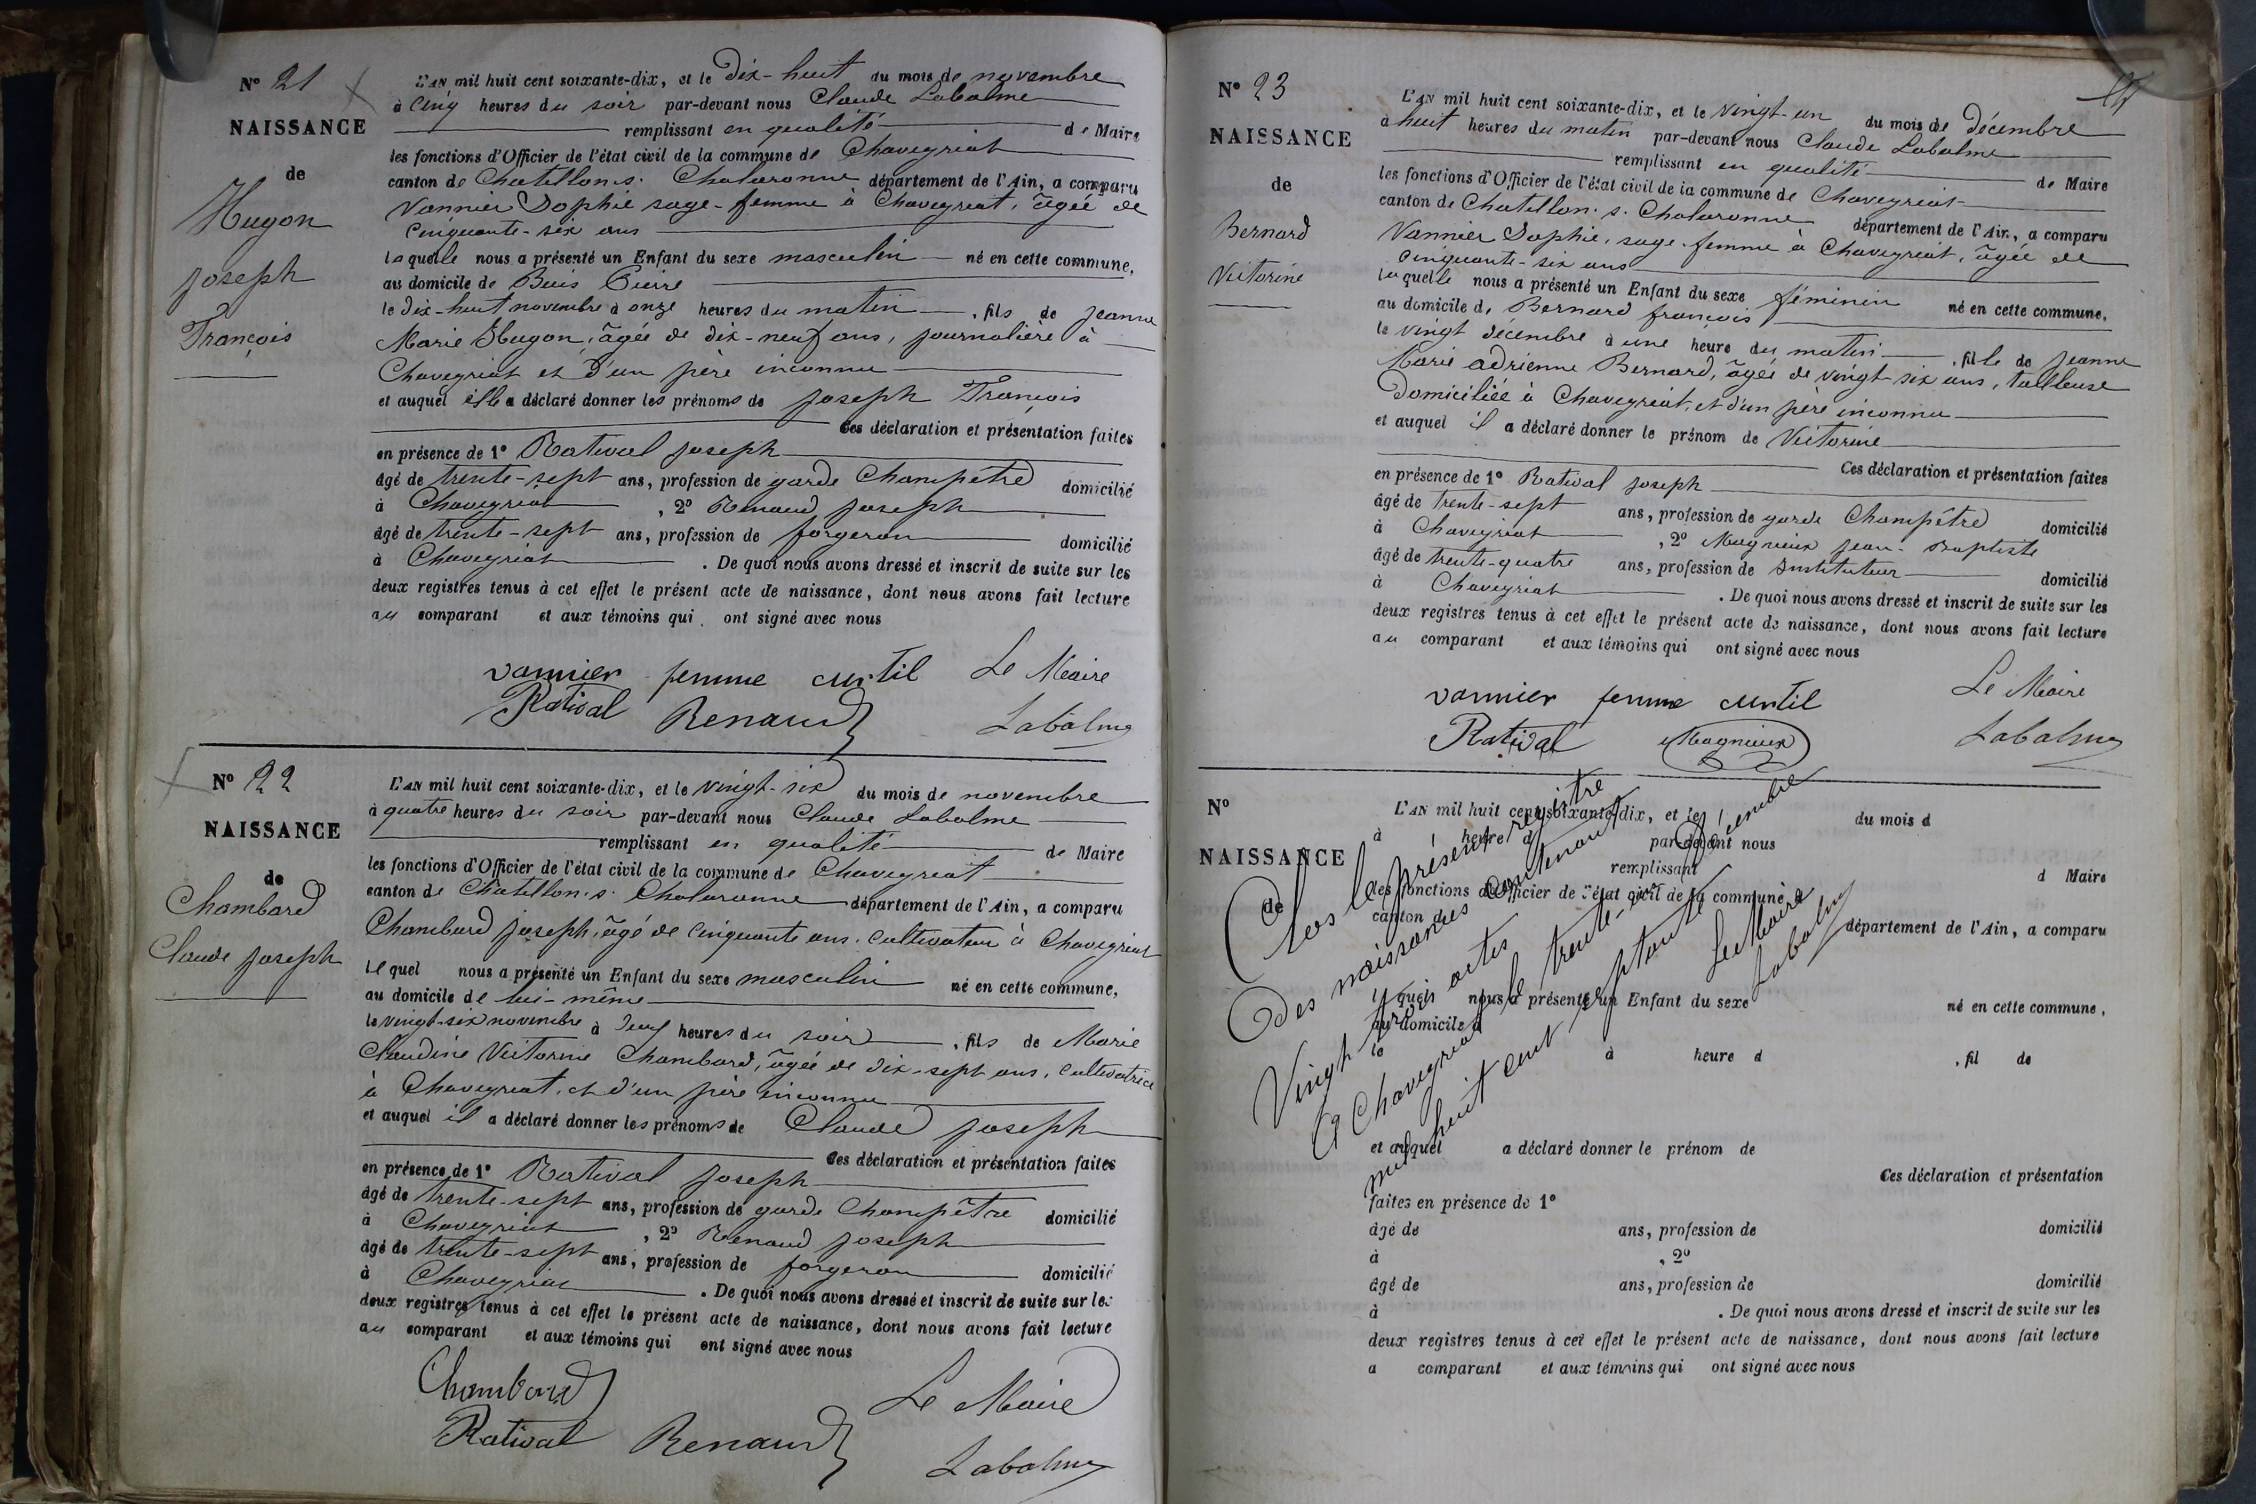 N° 21
NAISSANCE
de
Hugon
Joseph
François
L'AN mil huit cent soixante-dix, et le Dix-huit du mois de novembre
à cinq heures du soir par-devant nous Claude Labalme
remplissant en qualité de Maire
les fonctions d'Officier de l'état civil de la commune de Chaveyriat
canton de Chatillon s. Chalaronne département de l'Ain, a comparu
Vannier Sophie sage-femme à Chaveyriat, âgée de
cinquante-six ans
laquelle nous a présenté un Enfant du sexe masculin né en cette commune,
au domicile de Buis Pierre
le dix-huit novembre à onze heures du matin, fils de Jeanne
Marie Hugon, âgée de dix-neuf ans, journalière à
Chaveyriat et d'un père inconnu
et auquel elle a déclaré donner les prénoms de Joseph François
Ces déclaration et présentation faites
en présence de 1° Ratival Joseph
âgé de trente-sept ans, profession de garde Champêtre domicilié
à Chaveyriat, 2° Renaud Joseph
âgé de trente-sept ans, profession de forgeron domicilié
à Chaveyriat. De quoi nous avons dressé et inscrit de suite sur les
deux registres tenus à cet effet le présent acte de naissance, dont nous avons fait lecture
au comparant et aux témoins qui ont signé avec nous
vannier femme curtil Le Maire
Ratival Renaud Labalme
N° 22
NAISSANCE
de
Chambard
Claude Joseph
L'AN mil huit cent soixante-dix, et le vingt-six du mois de novembre
à quatre heures du soir par-devant nous Claude Labalme
remplissant en qualité de Maire
les fonctions d'Officier de l'état civil de la commune de Chaveyriat
canton de Chatillon s. Chalaronne département de l'Ain, a comparu
Chambard Joseph, âgé de cinquante ans, cultivateur à Chaveyriat
lequel nous a présenté un Enfant du sexe masculin né en cette commune,
au domicile de lui-même
le vingt-six novembre à heures du soir, fils de Marie
Claudine Victorine Chambard, âgée de dix-sept ans, cultivatrice
à Chaveyriat, et d'un père inconnu
et auquel il a déclaré donner les prénoms de Claude Joseph
Ces déclaration et présentation faites
en présence de 1° Ratival Joseph
âgé de trente-sept ans, profession de garde Champêtre domicilié
à Chaveyriat, 2° Renaud Joseph
âgé de trente-sept ans, profession de forgeron domicilié
à Chaveyriat. De quoi nous avons dressé et inscrit de suite sur les
deux registres tenus à cet effet le présent acte de naissance, dont nous avons fait lecture
au comparant et aux témoins qui ont signé avec nous
Chambard Le Maire
Ratival Renaud Labalme
N° 23
NAISSANCE
de
Bernard
Victorine
L'AN mil huit cent soixante-dix, et le vingt-un du mois de décembre
à huit heures du matin par-devant nous Claude Labalme
remplissant en qualité de Maire
les fonctions d'Officier de l'état civil de la commune de Chaveyriat
canton de Chatillon s. Chalaronne département de l'Ain, a comparu
Vannier Sophie, sage-femme à Chaveyriat, âgée de
cinquante-six ans
laquelle nous a présenté un Enfant du sexe féminin né en cette commune,
au domicile de Bernard françois
le vingt décembre à une heure du matin, fille de Jeanne
Marie adrienne Bernard, âgée de vingt-six ans, tailleuse
Domiciliée à Chaveyriat, et d'un père inconnu
et auquel il a déclaré donner le prénom de Victorine
Ces déclaration et présentation faites
en présence de 1° Ratival Joseph
âgé de trente-sept ans, profession de garde Champêtre domicilié
à Chaveyriat, 2° Magnieux Jean-Baptiste
âgé de trente-quatre ans, profession de Instituteur domicilié
à Chaveyriat. De quoi nous avons dressé et inscrit de suite sur les
deux registres tenus à cet effet le présent acte de naissance, dont nous avons fait lecture
au comparant et aux témoins qui ont signé avec nous
vannier femme curtil Le Maire
Ratival Magnieux Labalme
N°
NAISSANCE
de
L'AN mil huit cent soixante-dix, et le du mois d
à heure d par-devant nous
remplissant d Maire
les fonctions d'Officier de l'état civil de la commune
canton de département de l'Ain, a comparu
l quel nous a présenté un Enfant du sexe né en cette commune,
au domicile d
le à heure d, fil de
et auquel a déclaré donner le prénom de
Ces déclaration et présentation
faites en présence de 1°
âgé de ans, profession de domicilié
à, 2°
âgé de ans, profession de domicilié
à. De quoi nous avons dressé et inscrit de suite sur les
deux registres tenus à cet effet le présent acte de naissance, dont nous avons fait lecture
a comparant et aux témoins qui ont signé avec nous
Clos le présent registre
Des naissances contenant
Vingt-trois actes
A Chaveyriat le trente-un Décembre
mil huit cent septante
Le Maire
Labalme